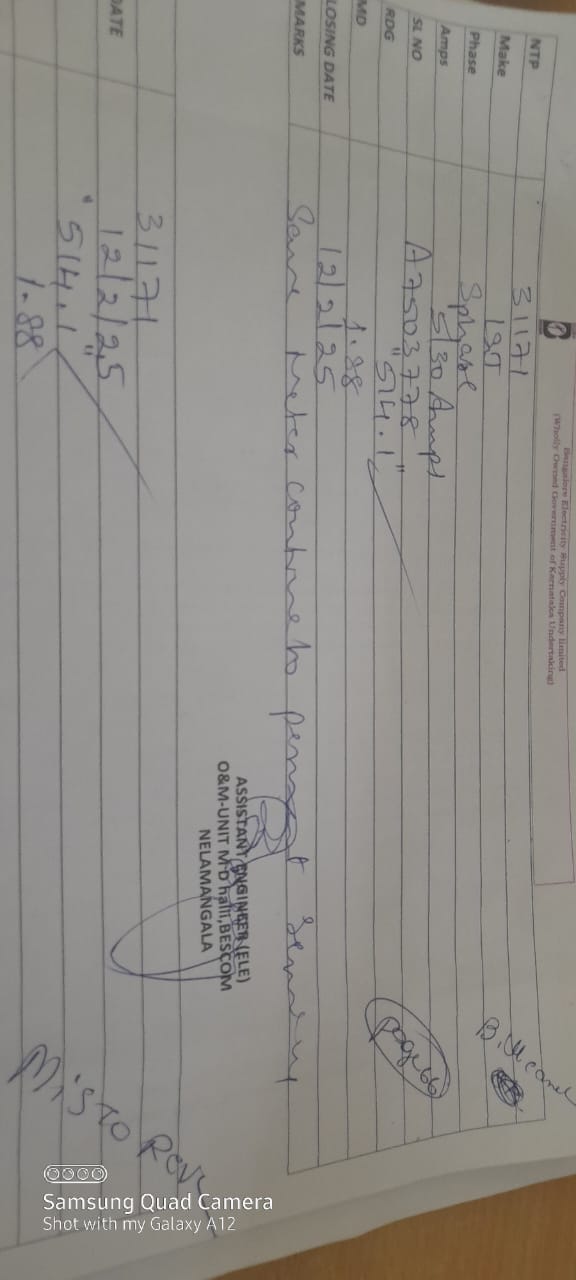 Bangalore Electricity Supply Company limited
(Wholly Owned Government of Karnataka Undertaking)
NTP 31171
Make
Phase 3phase
Amps 5/30 Amps
SL NO A7503778
RDG "514.1"
MD 1.88
LOSING DATE 12/2/25
MARKS Same Meter continue to
page 66
ASSISTANT ENGINEER (ELE)
O&M-UNIT M D halli,BESCOM
NELAMANGALA
31171
DATE 12/2/25
"514.1"
1.88
Samsung Quad Camera
Shot with my Galaxy A12